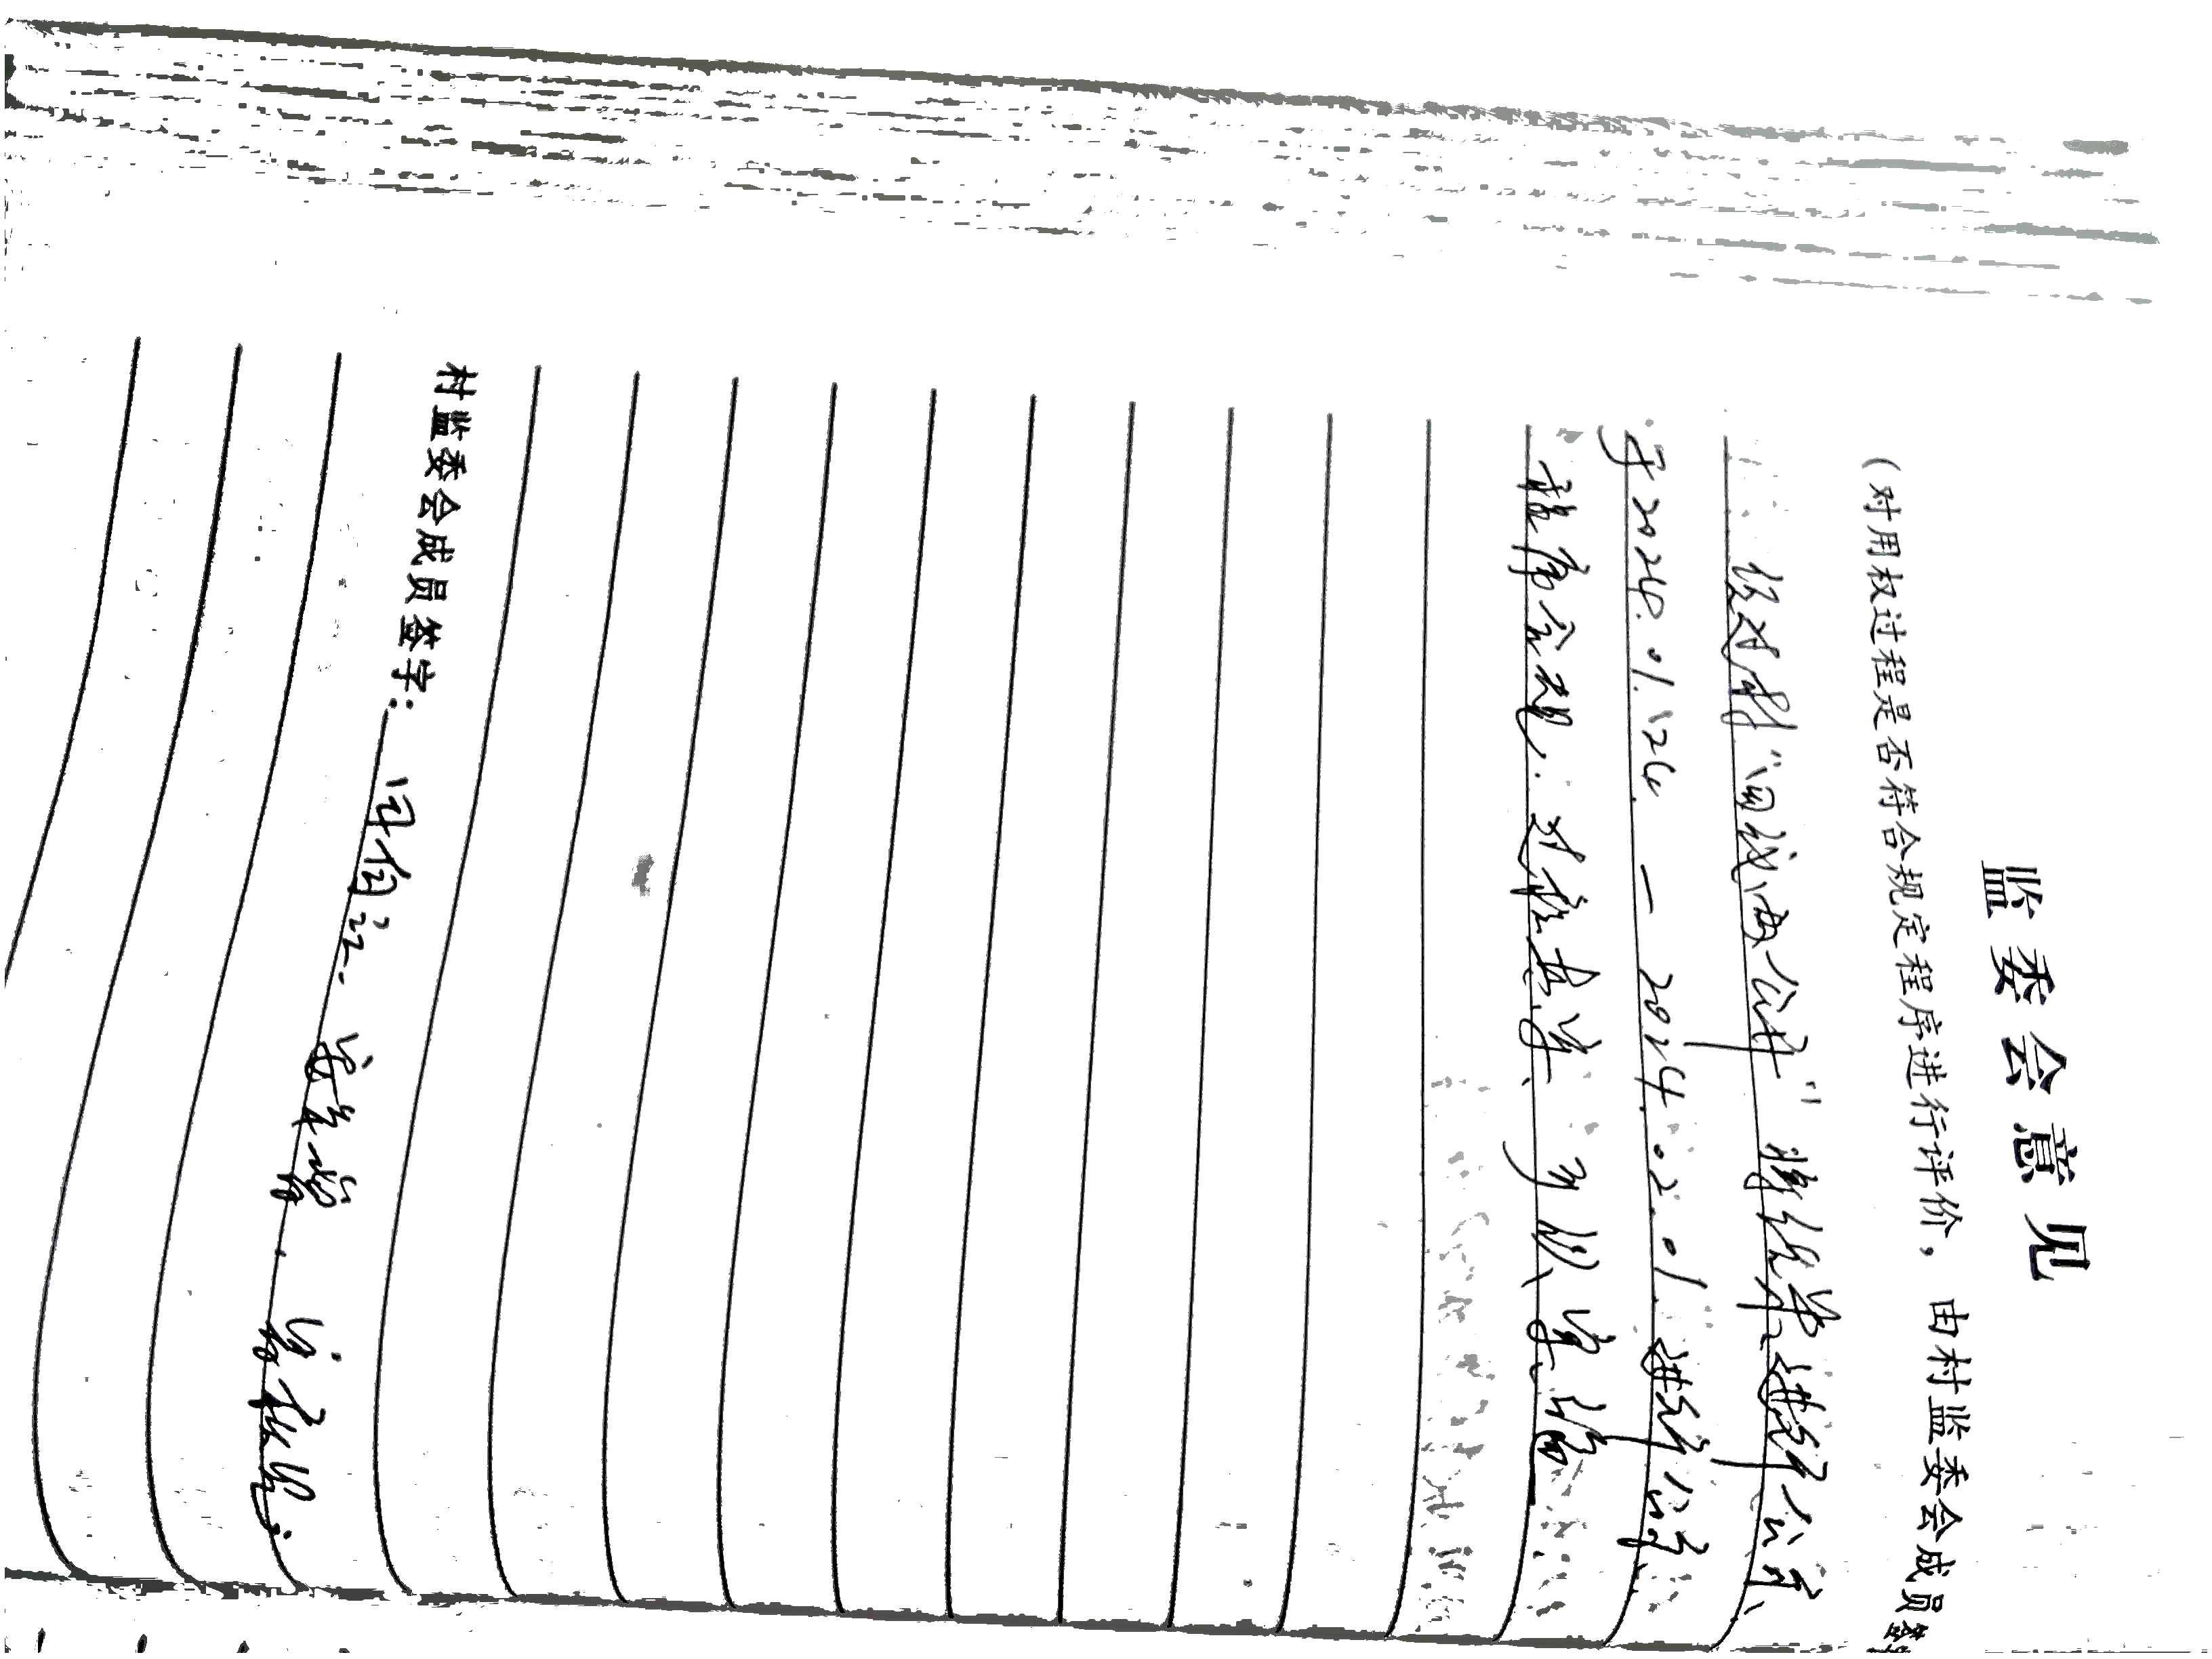 监委会意见
（对用权过程是否符合规定程序进行评价，由村监委会成员签字
经过村“四议两公开”将结果进行公示、
于2024.01.24.—2024.02.01.进行公示
程序合规.过程真实、可以实施
村监委会成员签字：田伯江.